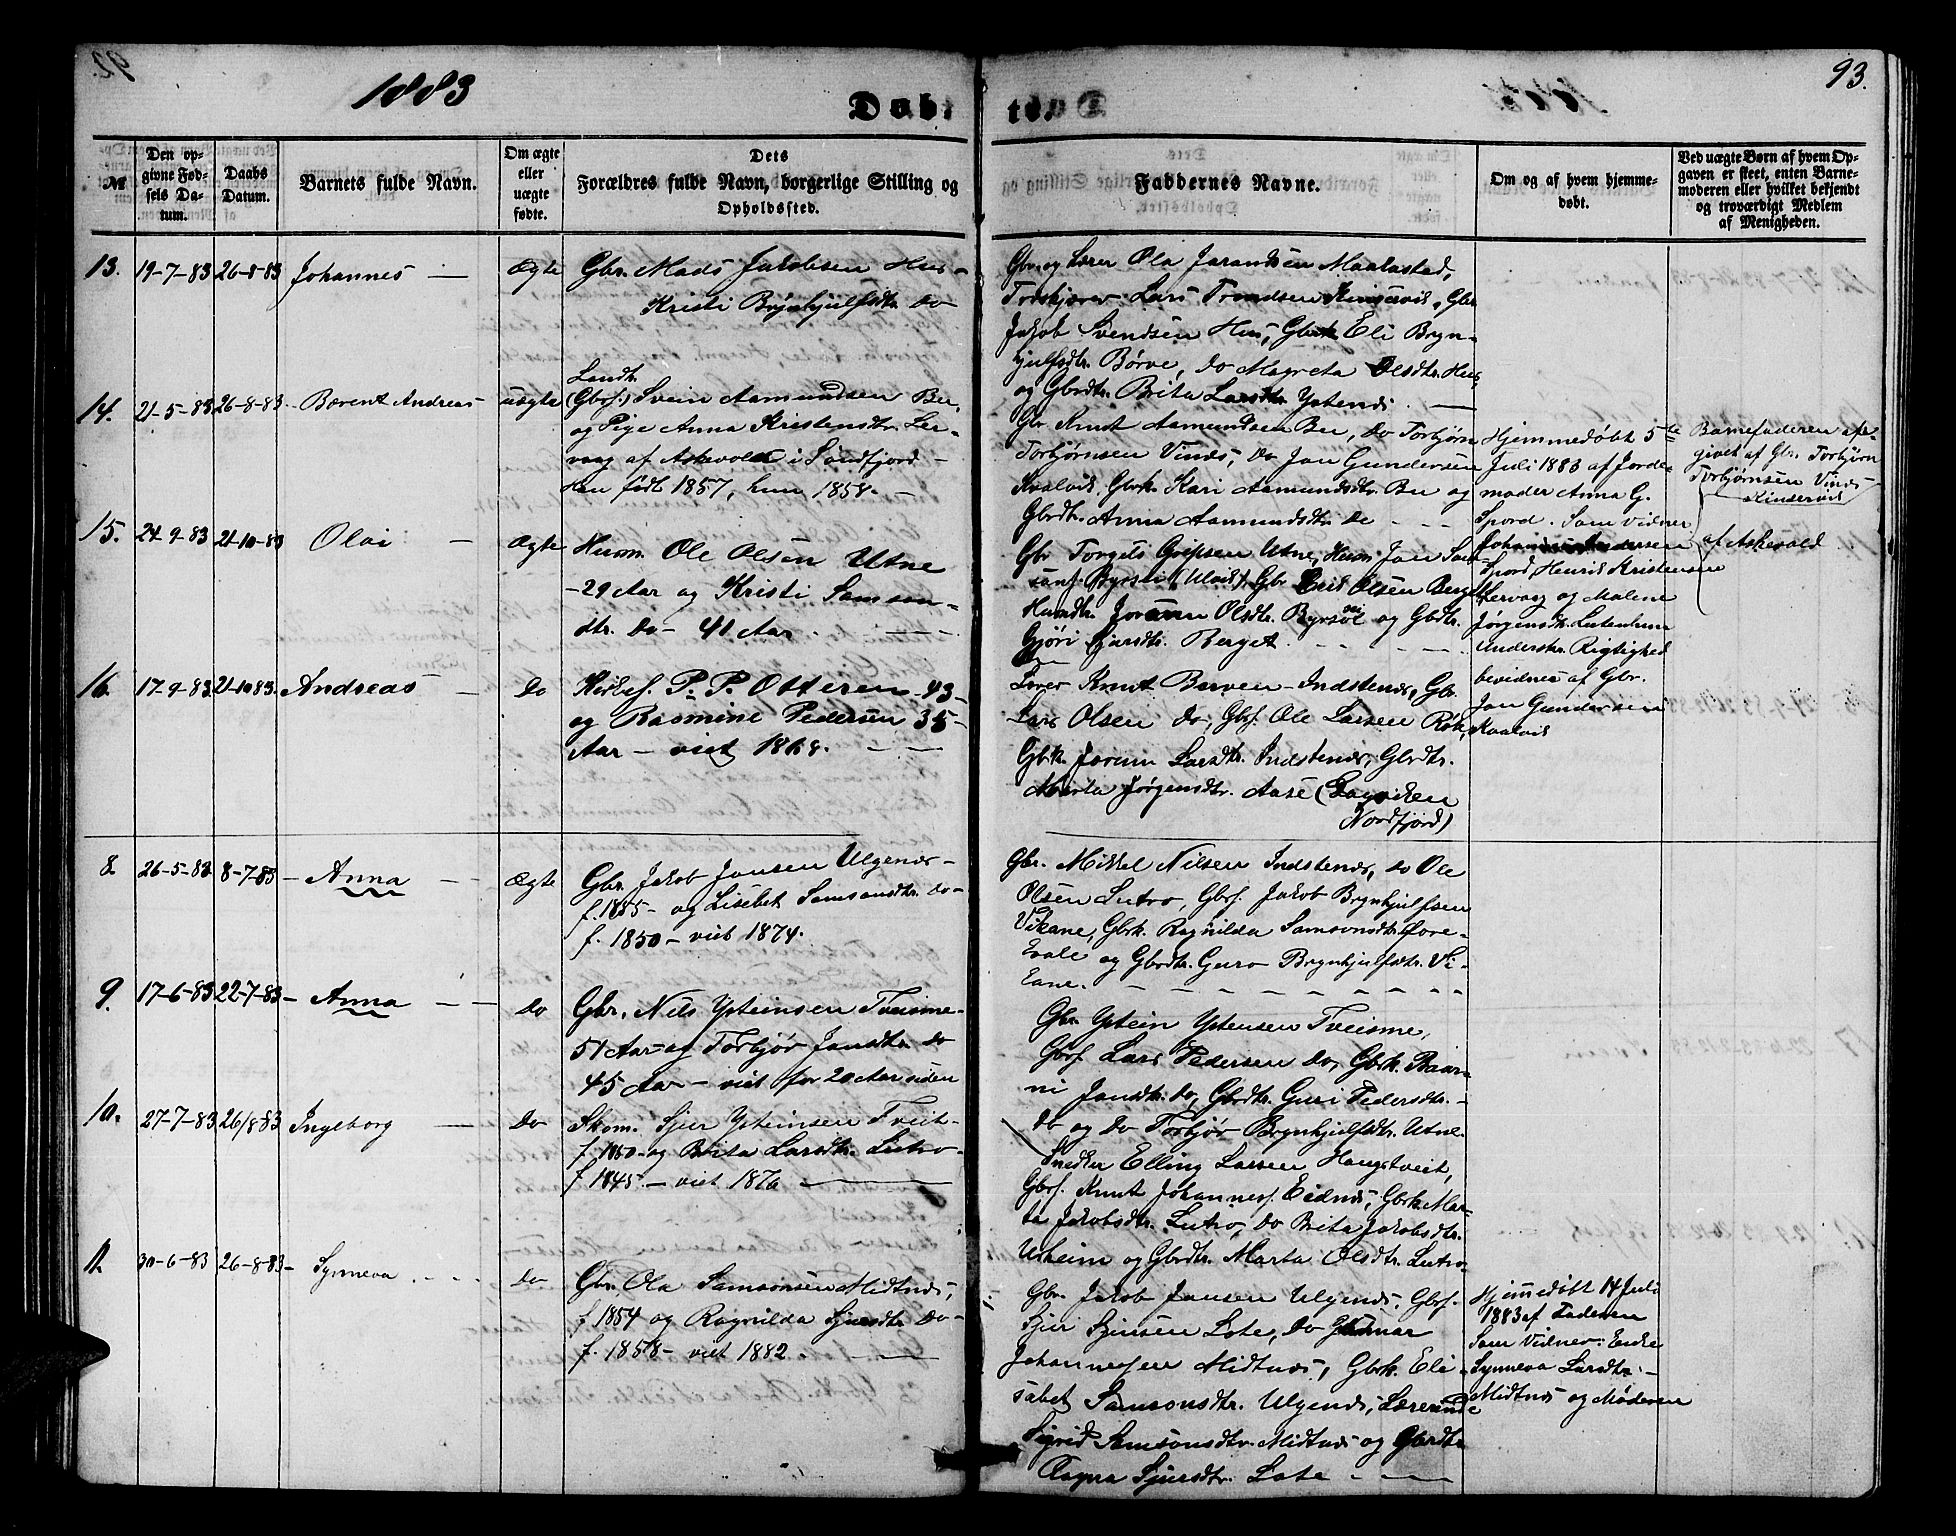 1883
93.
Døbte.
№
Den opgivne Fødsels Datum.
Daabs Datum.
Barnets fulde Navn.
Om ægte eller uægte fødte.
Dets Forældres fulde Navn, borgerlige Stilling og Opholdssted.
Faddernes Navne.
Om og af hvem hjemmedøbt.
Ved uægte Børn af hvem Opgaven er skeet, enten Barnemoderen eller hvilket bekjendt og troværdigt Medlem af Menigheden.
13. 19-7-83 26-8-83 Johannes — Ægte
Gbr. Mads Jakobsen Hus-
Kristi Brynhjulfsdtr. Do
Gbr. og Lærer Ola Jarandsen Maalastad,
Torskjærer Lars Trondsen Kinservik, Gbr.
Jakob Svendsen Hus, Gbrk. Eli Bryn-
hjulfsdtr. Børve, Do Magreta Olsdtr. Hus
og Gbrdtr. Brita Larsdtr. Ystenes. —
14. 21-5-83 26-8-83 Berent Andreas uægte
Landh.
(Gbrs.) Svein Aamundsen Bu,
og Pige Anna Kristensdtr. Ler-
vaag af Askevold i Søndfjord —
Han født 1857, hun 1858. —
Gbr. Knut Aamundsen Bu, Do Torbjørn
Torbjørnsen Vines, Do Jon Gundersen
Kvalvik, Gbrk. Kari Aamundsdtr. Bu og
Gbrdtr. Anna Aamundsdtr. Do - - -
Hjemmedøbt 5te
Juli 1883 af Jorde-
moder Anna G.
Spord. Som Vidner
Spord, Henrik Kristensen
Lervaag og Malene
Jørgensdtr.
Underskr. Rigtighed
bevidnes af Gbr.
Jon Gundersen
Kvalvik
Barnefaderen op-
givet af Gbr. Torbjørn
Torbjørnsen Vines
Kinservik
af Askevold
15. 24-9-83 21-10-83 Olai — Ægte
Husm. Ole Olsen Utne
-29 Aar og Kristi Samson-
dtr. Do- 41 Aar. - - -
Gbr. Torgils Gripsen Utne, Husm. Jon Sam-
sons. Byrsøl (Ulvik), Gbr. Olsen Berget
Husmdtr. Olsdtr. Byrsøl og Gbdtr.
Gjøri Sjursdtr. Berget. - - - -
16. 17-9-83 21-10-83. Andreas — Do
P. P. Otteren - 43-
og Rasmine Pedersen 35-
Aar — viet 1868. — —
Lærer Knut Berven - Indstenes, Gbr.
Lars Olsen Do, Gbrs. Ole Larsen
Gbrk. Jorunn Larsdtr. Indstenes, Gbrdtr.
Marta Jørgensdtr. Aase (
Nordfjord)
8. 26-5-83 8-7-83 - Anna - - Ægte
Gbr. Jakob Jonsen Ulgenæs -
f. 1855 - og Lisebet Samsonsdtr. Do-
f. 1850 - viet 1874.
Gbr. Mikkel Nilsen Indstenes, Do Ole
Olsen Lutro, Gbrs. Jakob Brynhjulfsen
Vikane, Gbrk. Ragnilda Samsonsdtr.
og Gbrdtr. Guro Brynhjulfsdtr. Vi-
kane. - - - - - - -
9. 17-6-83 22-7-83 - Anna - — Do
Gbr. Nils Ysteinsen Tveisme-
51 Aar og Torbjør Jonsdtr. Do
45 Aar - viet for 20 Aar siden
Gbr. Ystein Ystensen Tveisme,
Gbrs. Lars Pedersen Do, Gbrk.
Jonsdtr. Do, Gbrdtr. Guri Pedersdtr. -
Do og Do Torbjør Brynhjulfsdtr. Utne.
10. 27-7-83 26/8 83 Ingeborg — Do
Skom. Sjur Ysteinsen Tveit-
f. 1850 - og Brita Larsdtr. Lutro-
f. 1845. - viet 1876
Snedker Elling Larsen Haugstveit,
Gbrs. Knut Johanness. Eidnes, Gbrk. Mar-
ta Jakobsdtr. Lutro, Do Brita Jakobsdtr.
Usheim og Gbrdtr. Marta Olsdtr. Lutro.
11. 30-6-83 26-8-83 - Synneva - - - Do
Gbr. Ola Samsonsen Midtnes,
f. 1854 og Ragnilda Sjursdtr. Do-
f. 1858 - viet 1882. —
Gbr. Jakob Jonsen Ulgenes, Gbrs.
Sjur Sjursen Lote, Do Gunnar
Johannesen Midtnes, Gbrk. Eli-
sabet Samsonsdtr. Ulgenes, Lærerinde
Sigrid Samsonsdtr. Midtnes og Gbrdtr.
Ragna Sjursdtr. Lote - - -
Hjemmedøbt 14 Juli
1883 af Faderen
Som Vidner: Enke
Synneva Larsdtr. -
Midtnes og Moderen